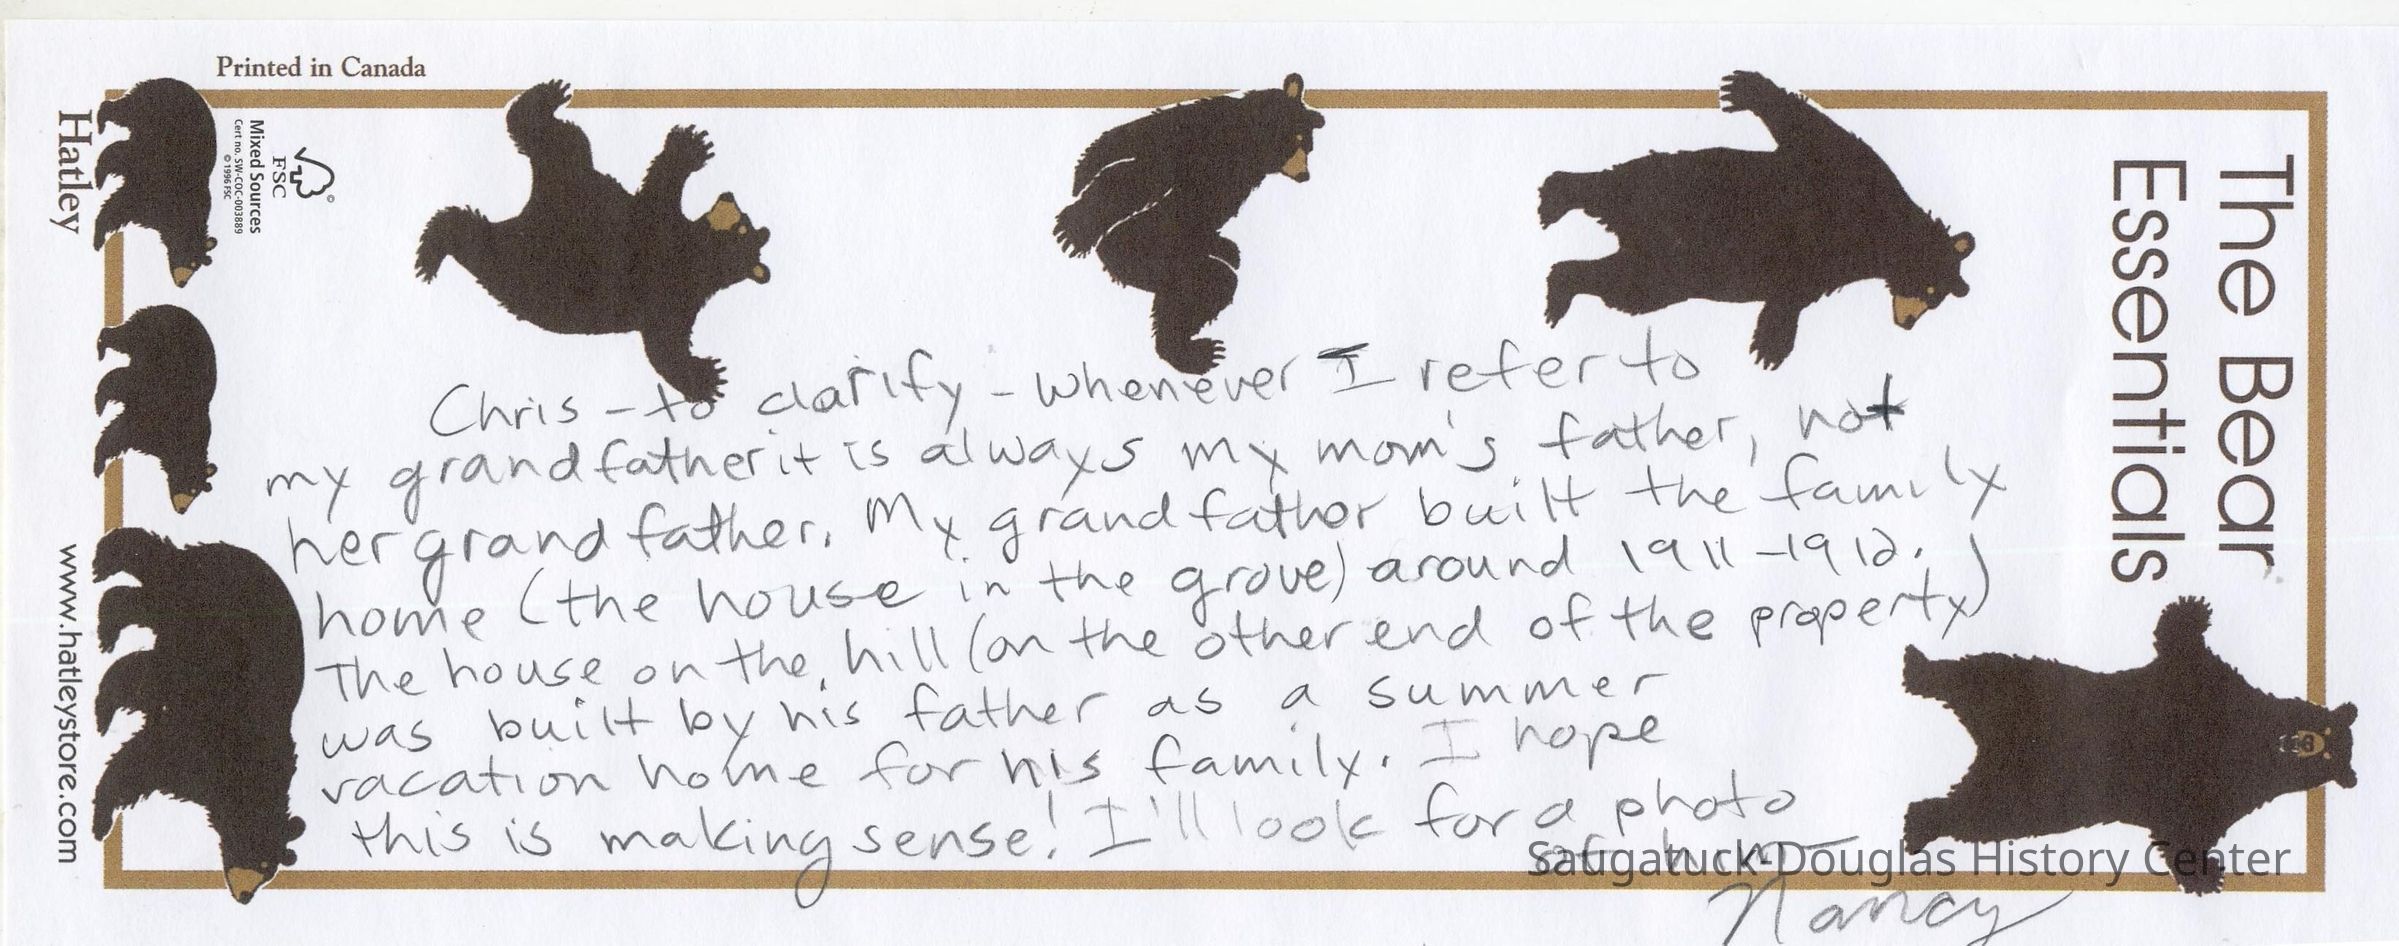 Printed in Canada
Hatley
Mixed Sources
Cert no. SW-COC-003889
© 1996 FSC
FSC
©
www.hatleystore.com
The Bear
Essentials
Chris - to clarify - whenever I refer to
my grandfather it is always my mom's father, not
her grandfather. My grandfather built the family
home (the house in the grove) around 1911-1912.
The house on the hill (on the other end of the property)
was built by his father as a summer
vacation home for his family. I hope
this is making sense! I'll look for a photo
of him
Nancy
Saugatuck-Douglas History Center